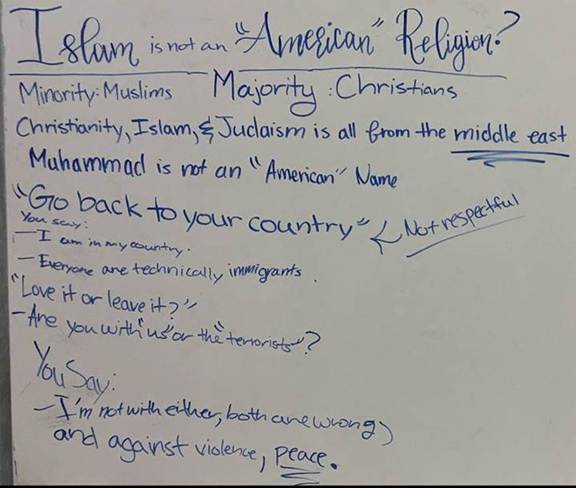 Islam is not an "American" Religion?
Minority: Muslims Majority: Christians
Christianity, Islam, & Judaism is all from the middle east
Muhammad is not an "American" Name
"Go back to your country" Not respectful
You say:
- I am in my country.
- Everyone are technically immigrants.
"Love it or leave it?"
- Are you with "us" or the "terrorists"?
You Say:
- I'm not with either, both are wrong,
and against violence, peace.